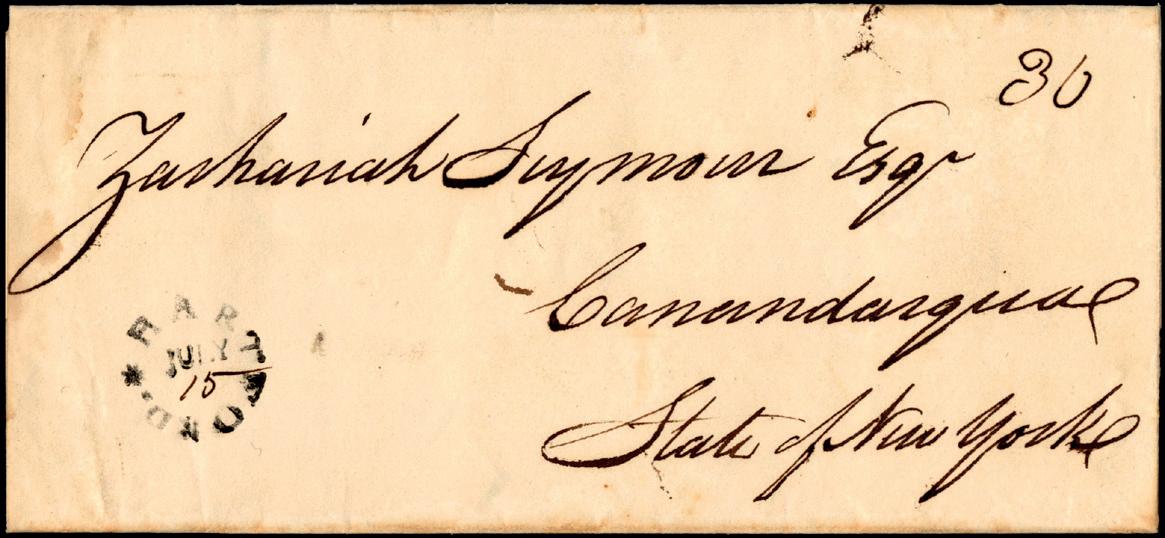 30
Zachariah Seymour Esqr
Canandarqua
State of New York
HARTFORD.
JULY
15